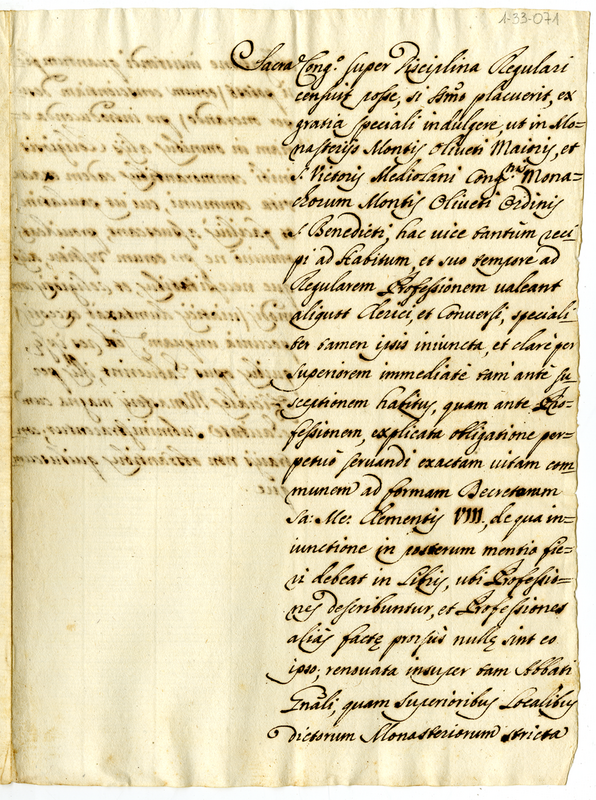 1-33-071
Sacra Cong.o super Disciplina Regulari
censuit posse, si SSmo placuerit, ex
gratia speciali indulgere, ut in Mo=
nasterijs Montis Oliveti Maioris, et
S. Victoris Mediolani Cong.nis Mona=
chorum Montis Oliveti Ordinis
S. Benedicti, hac vice tantum reci=
pi ad habitum, et suo tempore ad
Regularem Professionem valeant
aliquot Clerici, et Conversi, speciali=
ter tamen ipsis iniuncta, et clarè per
superiorem immediatè tam antè su=
sceptionem habitus, quam ante Pro=
fessionem, explicata obligatione per=
petuò servandi exactam vitam com=
munem ad formam Decretorum
Sa: Me: Clementis VIII., de qua in=
iunctione in posterum mentio fie=
ri debeat in Libris, ubi Professio=
nes describuntur, et Professiones
aliàs factę prorsùs nullę sint eo
ipso; renovata insuper tam Abbati
Gnãli, quam Superioribus Localibus
dictorum Monasteriorum stricta